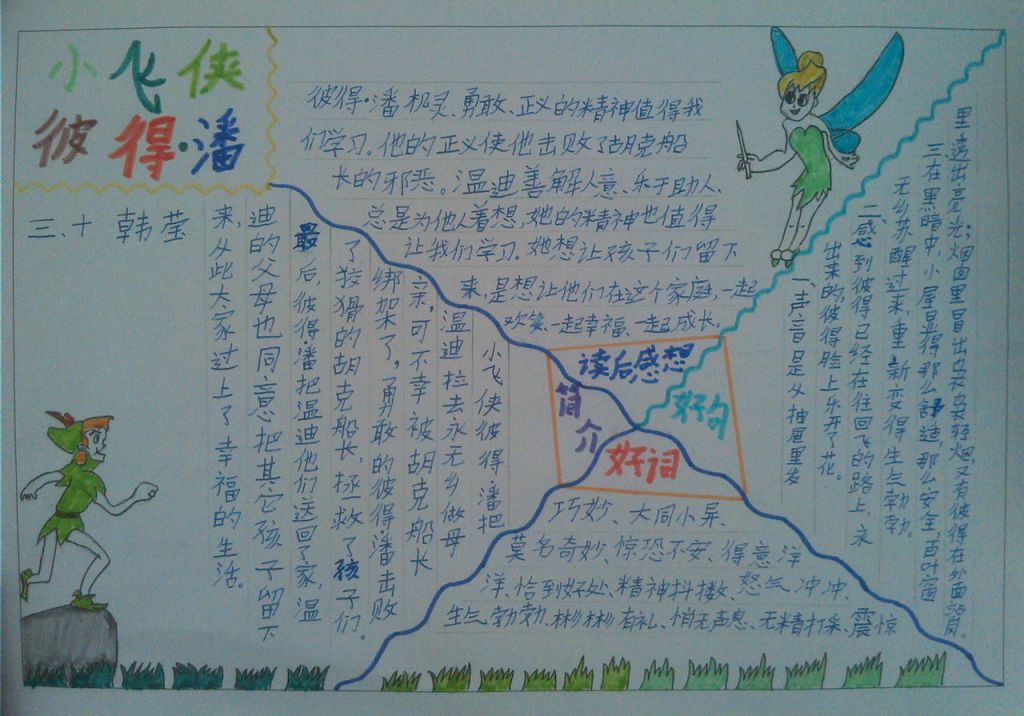 小飞侠
彼得·潘
三、十 韩莹
彼得·潘机灵、勇敢、正义的精神值得我
们学习。他的正义使他击败了胡克船
长的邪恶。温迪善解人意、乐于助人、
总是为他人着想,她的精神也值得
让我们学习。她想让孩子们留下
来,是想让他们在这个家庭,一起
欢笑、一起幸福、一起成长。
读后感想
简介
好句
好词
小飞侠彼得·潘把
温迪拉去永无乡做母
亲,可不幸被胡克船长
绑架了,勇敢的彼得·潘击败
了狡猾的胡克船长,拯救了孩子们。
最后,彼得·潘把温迪他们送回了家,温
迪的父母也同意把其它孩子留下
来,从此大家过上了幸福的生活。
一、声音是从抽屉里发
出来的,彼得脸上乐开了花。
二、感到彼得已经在往回飞的路上,永
无乡苏醒过来,重新变得生气勃勃。
三、在黑暗中,小屋显得那么舒适,那么安全,百叶窗
里透出亮光;烟囱里冒出袅袅轻烟,又有彼得在外面站
巧妙、大同小异、
莫名奇妙、惊恐不安、得意洋
洋、恰到好处、精神抖擞、怒气冲冲、
生气勃勃、彬彬有礼、悄无声息、无精打采、震惊